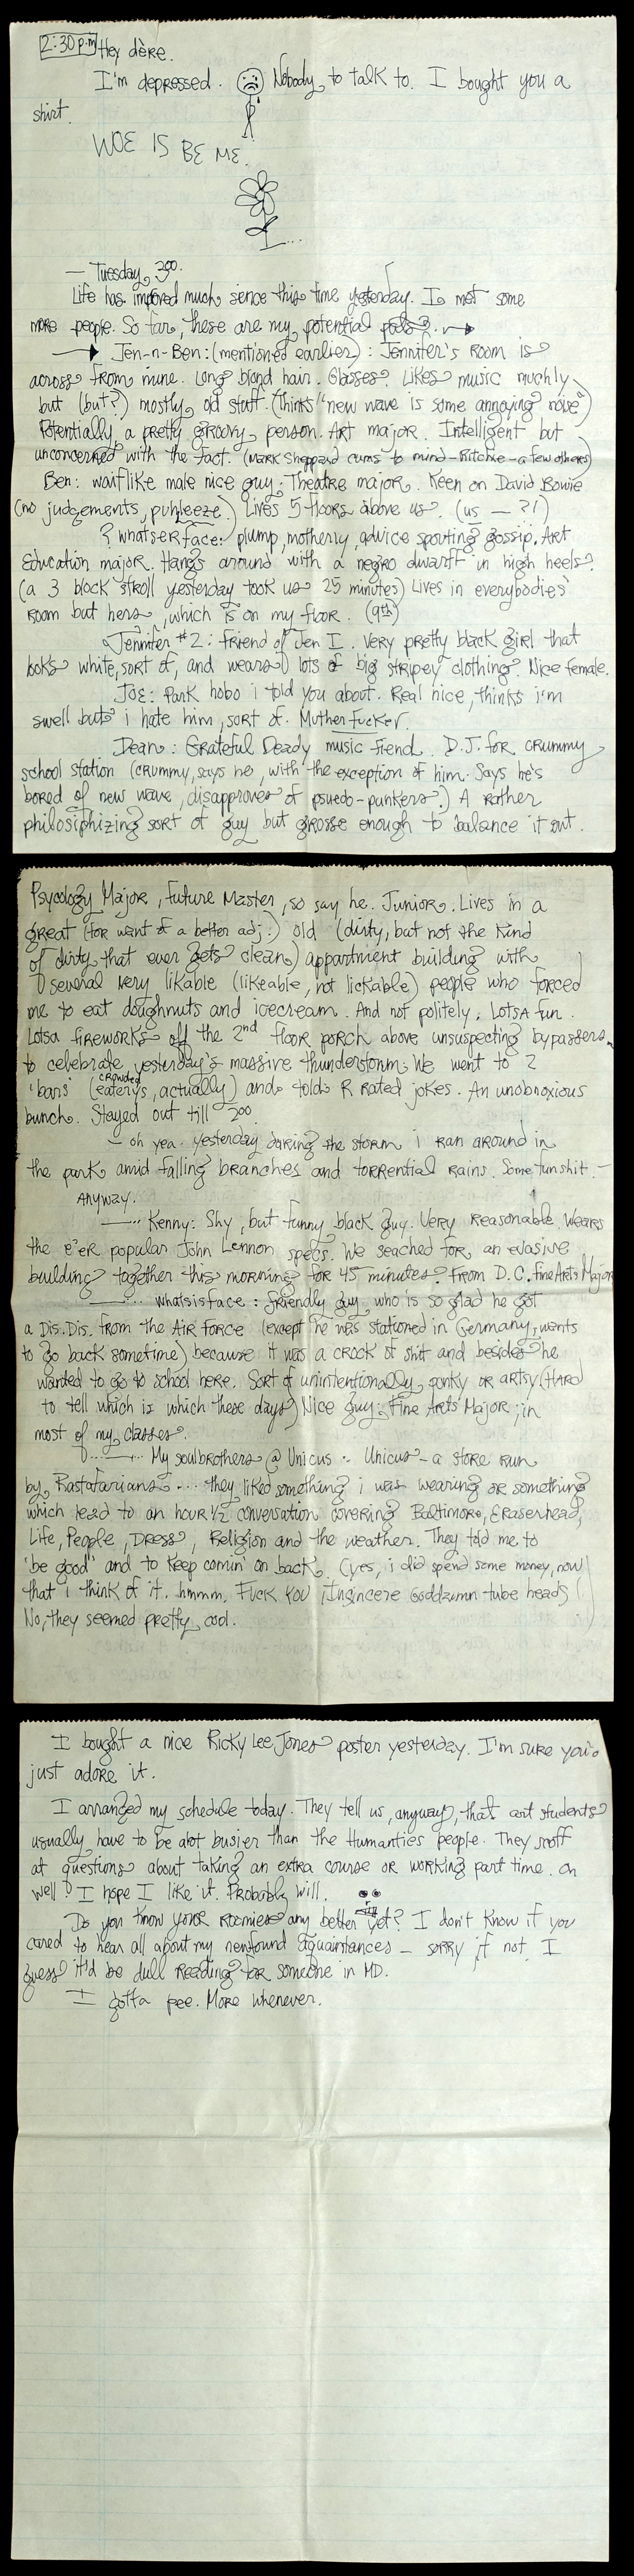 2:30 p.m Hey dere.
I'm depressed. Nobody to talk to. I bought you a
shirt.
WOE IS BE ME.
— Tuesday, 3:00.
Life has improved much sence this time yesterday. I met some
more people. So far, these are my potential pals?.
Jen-n-Ben: (mentioned earlier): Jennifer's room is
across from mine. Long blond hair. Glasses. Likes music muchly
but (but?) mostly old stuff. (thinks "new wave is some annoying noise")
Potentially a pretty groovy person. Art major. Intelligent but
unconcerned with the fact. (Mark Sheppard cums to mind-Ritchie-a few others)
Ben: waiflike male nice guy. Theatre major. Keen on David Bowie
(no judgements, puhleeze.) Lives 5 floors above us. (us — ?!)
? whatserface: plump, motherly, advice spouting gossip. Art
Education major. Hangs around with a negro dwarff in high heels.
(a 3 block stroll yesterday took us 25 minutes) Lives in everybodies'
room but hers, which is on my floor. (9th)
Jennifer #2: friend of Jen I. Very pretty black girl that
looks white, sort of, and wears lots of big stripey clothing. Nice female.
Joe: Park hobo i told you about. Real nice, thinks i'm
swell but i hate him, sort of. Muther Fucker.
Dean: Grateful Deady music fiend. D.J. for crummy
school station (crummy, says he, with the exception of him. Says he's
bored of new wave, disapproves of psuedo-punkers.) A rather
philosiphizing sort of guy but grosse enough to balance it out.
Psycology Major, future Master, so say he. Junior. Lives in a
great (for want of a better adj.) old (dirty, but not the kind
of dirty that ever gets clean) appartment building with
several very likable (likeable, not lickable) people who forced
me to eat doughnuts and icecream. And not politely. Lotsa fun.
Lotsa fireworks off the 2nd floor porch above unsuspecting bypassers
to celebrate yesterday's massive thunderstorm. We went to 2
'bars' (crowded eaterys, actually) and told R rated jokes. An unobnoxious
bunch. Stayed out till 2:00.
— oh yea. yesterday during the storm i ran around in
the park amid falling branches and torrential rains. Some fun shit. —
Anyway.
—... Kenny: Shy, but funny black guy. Very reasonable. Wears
the e'er popular John Lennon specs. We seached for an evasive
building together this morning for 45 minutes. From D.C. Fine Arts Major
—... whatsisface: friendly guy, who is so glad he got
a Dis.Dis. from the Air Force (except he was stationed in Germany, wants
to go back sometime) because it was a crock of shit and besides he
wanted to go to school here. Sort of unintentionally punky or artsy (HARD
to tell which is which these days) Nice guy. Fine Arts Major, in
most of my classes.
—... My soulbrothers @ Unicus: Unicus - a store run
by Rastafarians .... they liked something i was wearing or something
which lead to an hour 1/2 conversation covering Baltimore, Eraserhead,
Life, People, Dress, Religion and the weather. They told me to
'be good' and to keep comin' on back. (yes, i did spend some money, now
that i think of it. hmmm. FUCK YOU, Insincere Goddamn tube heads!)
No, they seemed pretty cool.
I bought a nice Ricky Lee Jones poster yesterday. I'm sure you'd
just adore it.
I arranged my schedule today. They tell us, anyway, that art students
usually have to be alot busier than the Humanties people. They snoff
at questions about taking an extra course or working part time. Oh
well? I hope I like it. Probably will.
Do you know your Roomies any better yet? I don't know if you
cared to hear all about my newfound aquaintances — sorry if not. I
guess it'd be dull reading for someone in MD.
I gotta pee. More whenever.